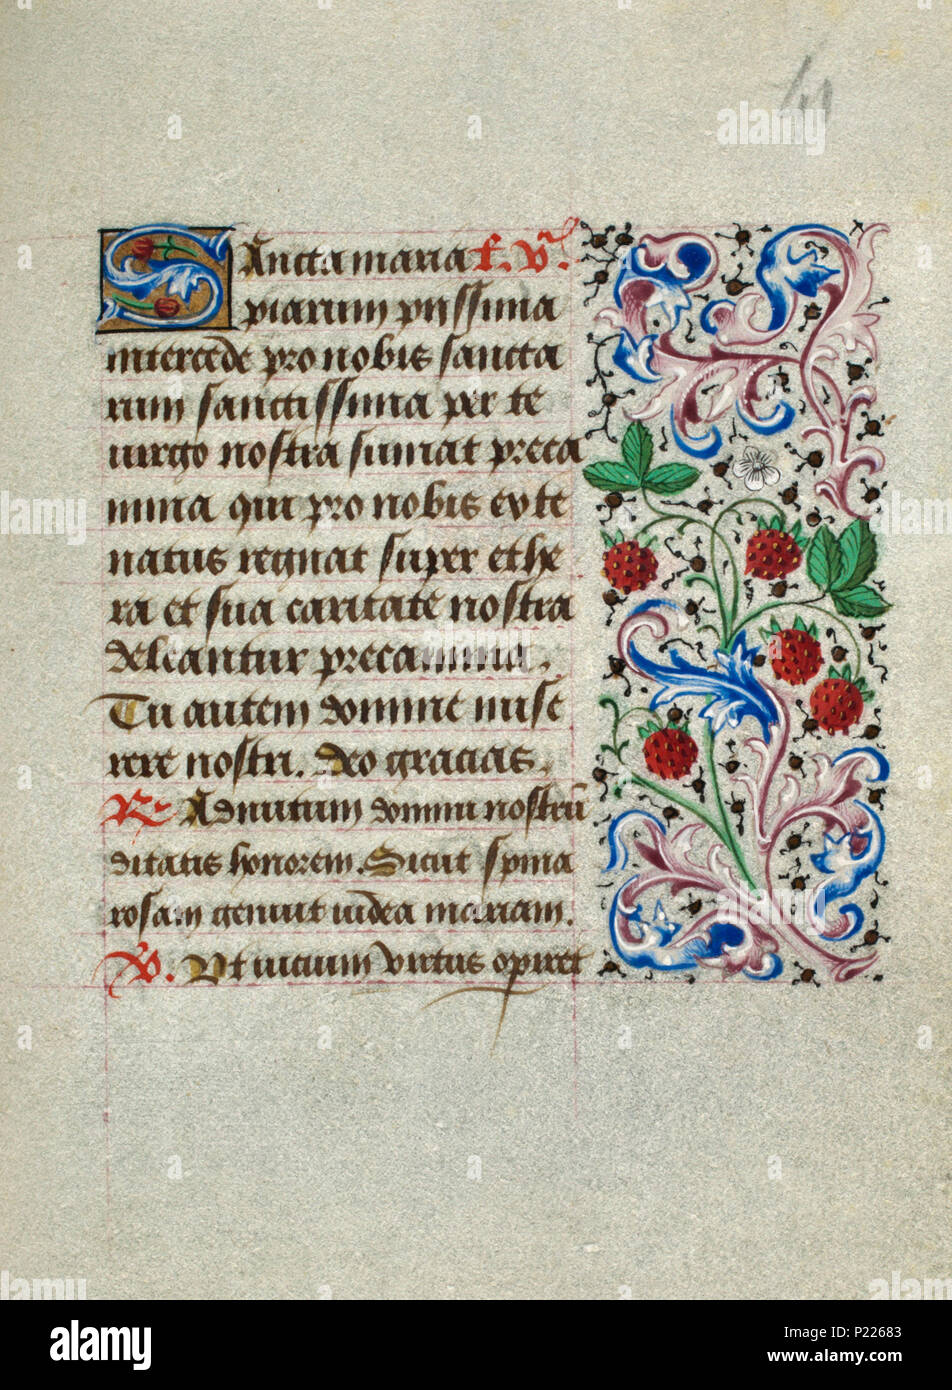 41
SAncta maria f. v.
piarum piissima
intercede pro nobis sancta
rum sanctissima per te
uirgo nostra sumat preca
mina qui pro nobis ex te
natus regnat super ethe
ra et sua caritate nostra
deleantur precamina.
Tu autem domine mise
rere nostri. Deo gracias.
R. Ad nutum domini nostrū
ditatis honorem. Sicut spina
rosam genuit iudea mariam.
V. Ut uicium virtus operiret
alamy
Image ID: P22683
www.alamy.com